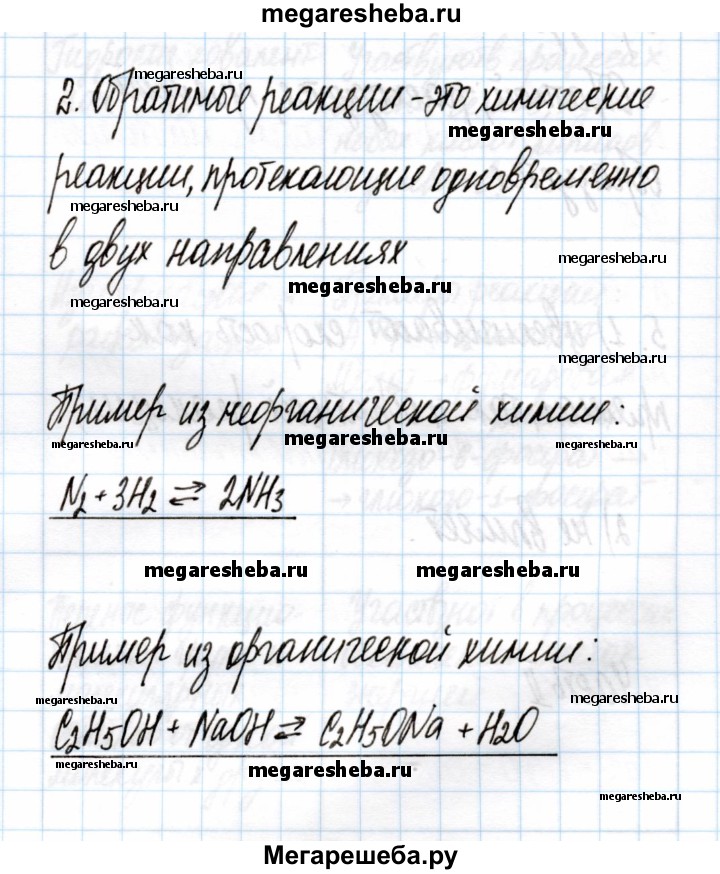 megaresheba.ru
megaresheba.ru
2. Обратимые реакции - это химические
megaresheba.ru
реакции, протекающие одновременно
megaresheba.ru
в двух направлениях
megaresheba.ru
megaresheba.ru
megaresheba.ru
megaresheba.ru
Пример из неорганической химии:
megaresheba.ru
megaresheba.ru
megaresheba.ru
N2 + 3H2 ⇄ 2NH3
megaresheba.ru
megaresheba.ru
Пример из органической химии:
megaresheba.ru
megaresheba.ru
C2H5OH + NaOH ⇄ C2H5ONa + H2O
megaresheba.ru
megaresheba.ru
megaresheba.ru
Мегарешеба.ру